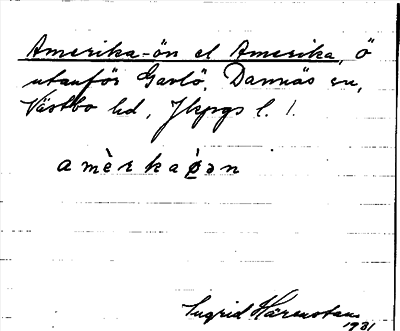 Amerika-ön el Amerika, ö
utanför Garlö. Dannäs sn,
Västbo hd, Jkpgs l.
amèrkaøən
Ingrid
1931